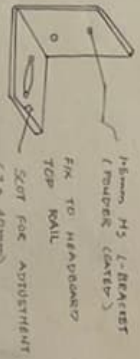 1.5mm MS L-BRACKET
(POWDER COATED)
FIX TO HEADBOARD
TOP RAIL
SLOT FOR ADJUSTMENT